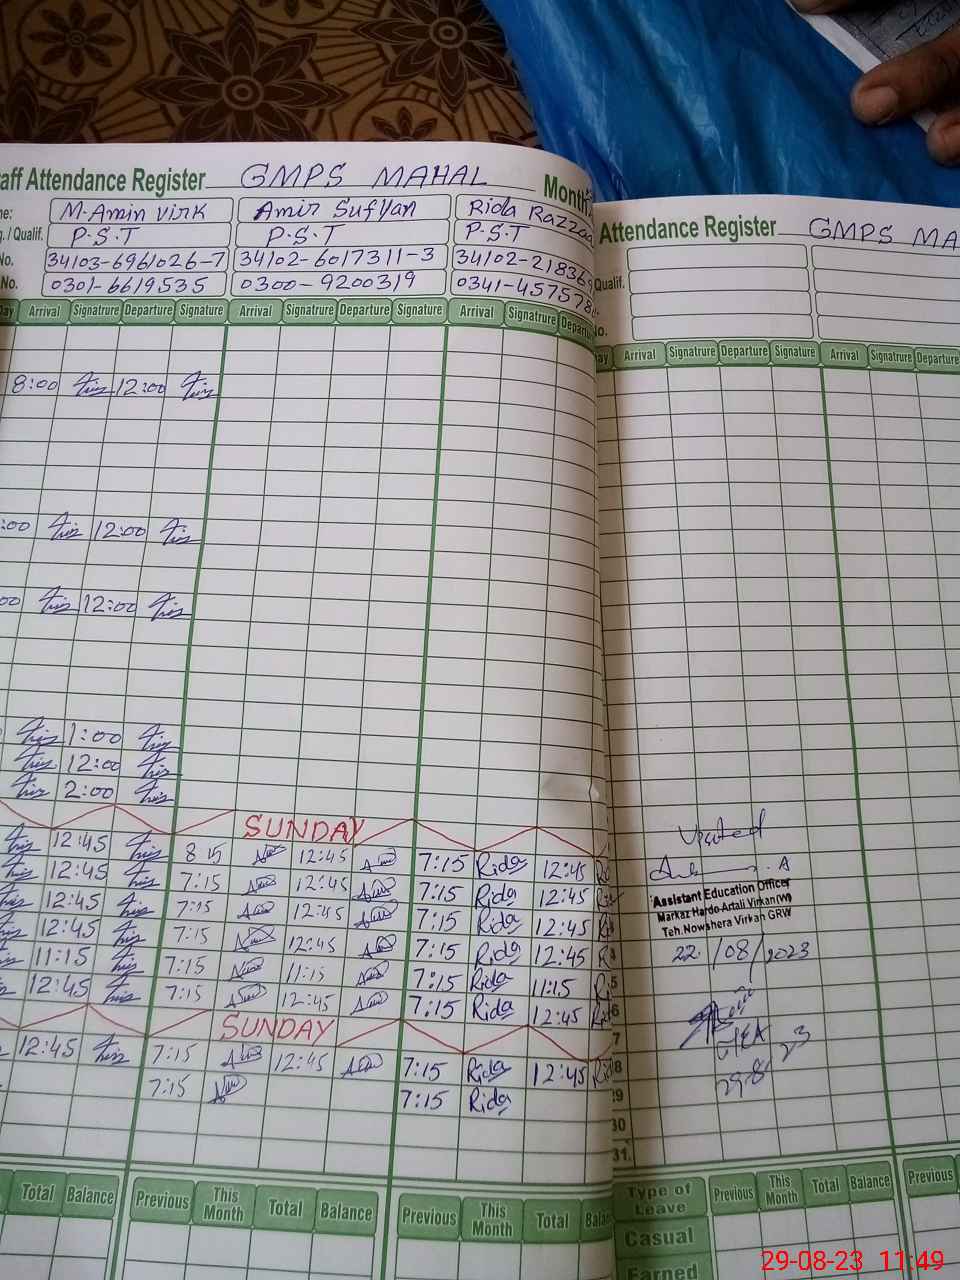 aff Attendance Register GMPS MAHAL Month
ne: M-Amin Virk Amir Sufyan Rida Razzaq
g. / Qualif. P.S.T P.S.T P.S.T
No. 34103-6961026-7 34102-6017311-3 34102-21836
No. 0301-6619535 0300-9200319 0341-457578
Day Arrival Signatrure Departure Signature Arrival Signatrure Departure Signature Arrival Signatrure Departu
8:00 12:00
:00 12:00
00 12:00
1:00
12:00
2:00
SUNDAY
12:45 8 15 12:45 7:15 Rida 12:45
12:45 7:15 12:45 7:15 Rida 12:45
12:45 7:15 12:45 7:15 Rida 12:45
12:45 7:15 12:45 7:15 Rida 12:45
11:15 7:15 11:15 7:15 Rida 11:15
12:45 7:15 12:45 7:15 Rida 12:45
SUNDAY
12:45 7:15 12:45 7:15 Rida 12:45
7:15 7:15 Rida
Total Balance Previous This Month Total Balance Previous This Month Total Balan
Attendance Register GMPS MA
Qualif.
No.
ay Arrival Signatrure Departure Signature Arrival Signatrure Departure
Visited
Assistant Education Officer
Markaz Hardo Artali Virkan(W)
Teh.Nowshera Virkan GRW
22/08/2023
5
6
7
8
29
30
31.
29-8-23
Type of Leave Previous This Month Total Balance Previous
Casual
Earned
29-08-23 11:49